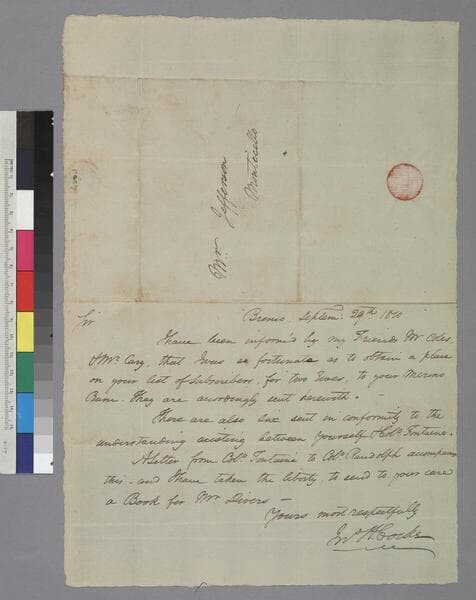 Mr. Jefferson
Monticello
Bremo. Septem: 29th 1810
Sir
I have been inform'd by my Friends Mr. Coles
& Mr. Cary, that I was so fortunate as to obtain a place
on your list of Subscribers, for two Ewes, to your Merino
Ram. They are accordingly sent herewith. -
There are also Six sent in conformity to the
understanding existing between yourself & Colo. Fontaine.
A letter from Colo. Fontaine to Colo. Randolph accompanies
this - and I have taken the liberty to send to your care
a Book for Mr Divers -
Yours most respectfully
Jno. H. Cocke